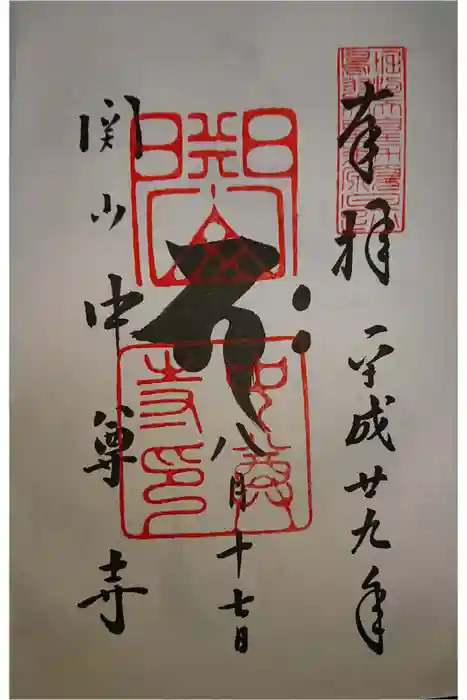 奉拝
平成廿九年
八月十七日
関山中尊寺